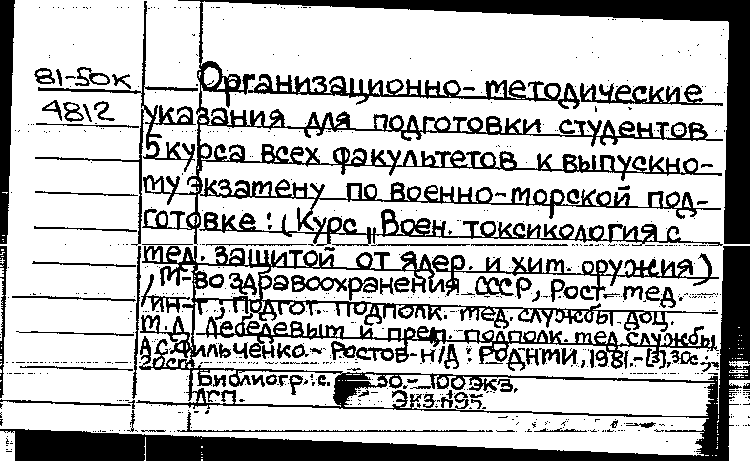 81-50к
4812
Организационно-методические
указания для подготовки студентов
5 курса всех факультетов к выпускно-
му экзамену по военно-морской под-
готовке: (Курс „Воен. токсикология с
мед. защитой от ядер. и хим. оружия)
/ М-во здравоохранения СССР, Рост. мед.
ин-т; Подгот. подполк. мед. службы доц.
М.Д. Лебедевым и преп. подполк. мед. службы
А.С. Фильченко. - Ростов-н/Д: РОДНМИ, 1981. - [3], 30с.;
20см
Библиогр.: с. 30. - 100 экз.
ДСП. Экз. №95.